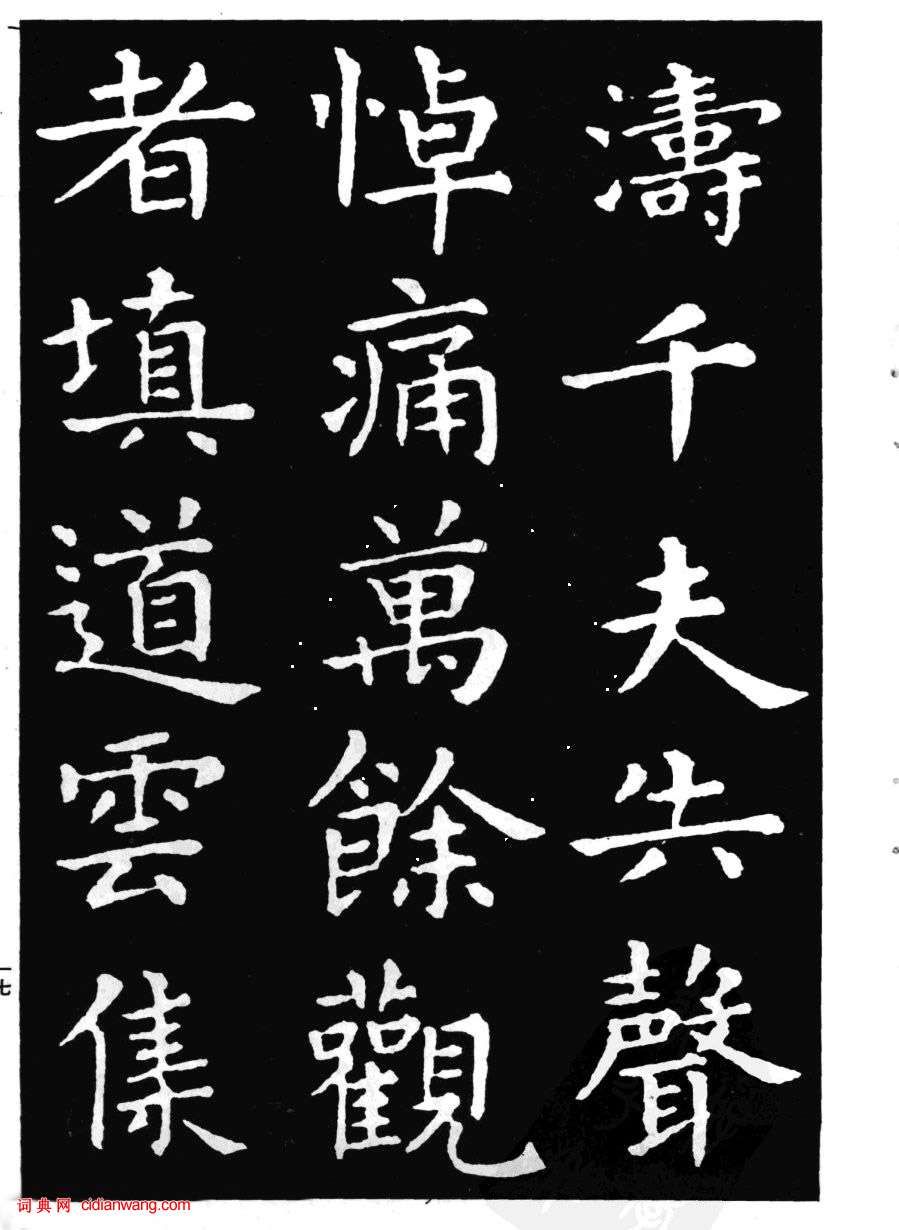 濤千夫共聲
悼痛萬餘觀
者填道雲集
十七
词典网 cidianwang.com